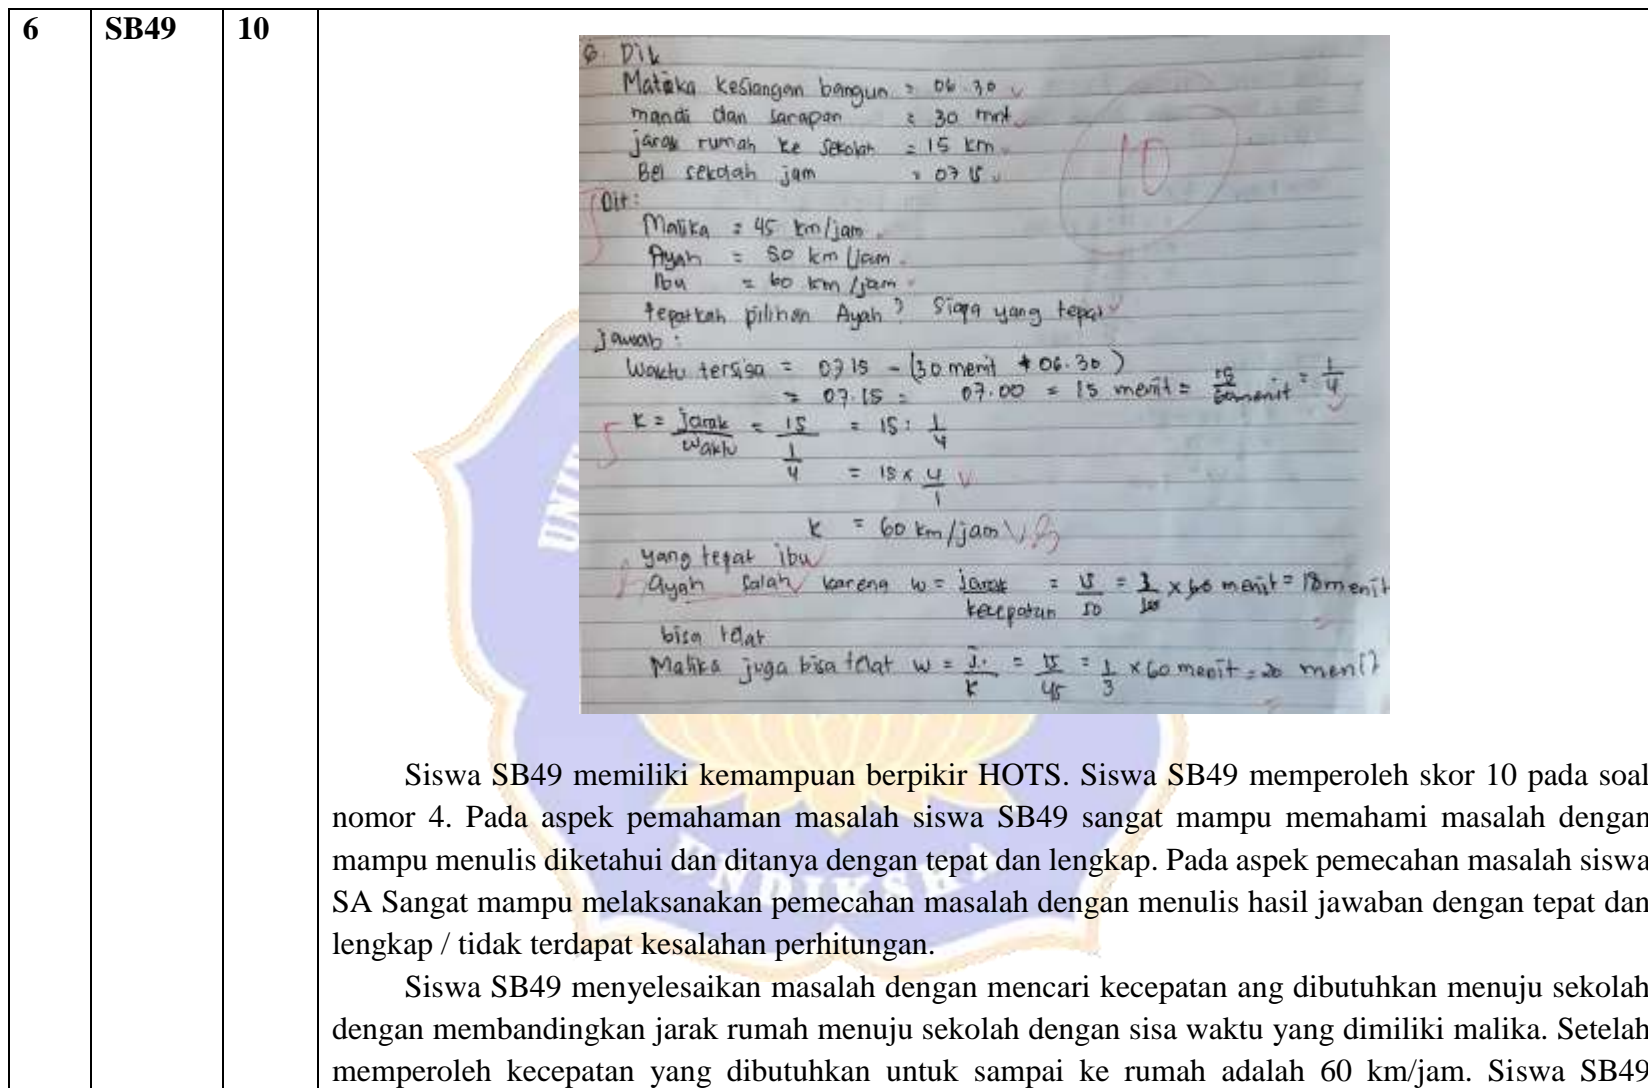 6 SB49 10
6. Dik
Malika kesiangan bangun = 06.30
mandi dan sarapan = 30 mnt
jarak rumah ke sekolah = 15 km
Bel sekolah jam = 07 15
10
5
Dit:
Malika = 45 km/jam
Ayah = 50 km/jam
Ibu = 60 km/jam
tepatkah pilihan Ayah? Siapa yang tepat
Jawab :
Waktu tersisa = 0715 - (30 menit + 06.30)
= 07.15 - 07.00 = 15 menit = 15/60 menit = 1/4
5 K = Jarak/Waktu = 15/(1/4) = 15 : 1/4
= 15 x 4/1
K = 60 km/jam
yang tepat ibu
ayah salah karena w = jarak/kecepatan = 15/50 = 3/10 x 60 menit = 18 menit
bisa telat
Malika juga bisa telat w = J./K = 15/45 = 1/3 x 60 menit = 20 menit
UNDIKSHA
Siswa SB49 memiliki kemampuan berpikir HOTS. Siswa SB49 memperoleh skor 10 pada soal
nomor 4. Pada aspek pemahaman masalah siswa SB49 sangat mampu memahami masalah dengan
mampu menulis diketahui dan ditanya dengan tepat dan lengkap. Pada aspek pemecahan masalah siswa
SA Sangat mampu melaksanakan pemecahan masalah dengan menulis hasil jawaban dengan tepat dan
lengkap / tidak terdapat kesalahan perhitungan.
Siswa SB49 menyelesaikan masalah dengan mencari kecepatan ang dibutuhkan menuju sekolah
dengan membandingkan jarak rumah menuju sekolah dengan sisa waktu yang dimiliki malika. Setelah
memperoleh kecepatan yang dibutuhkan untuk sampai ke rumah adalah 60 km/jam. Siswa SB49